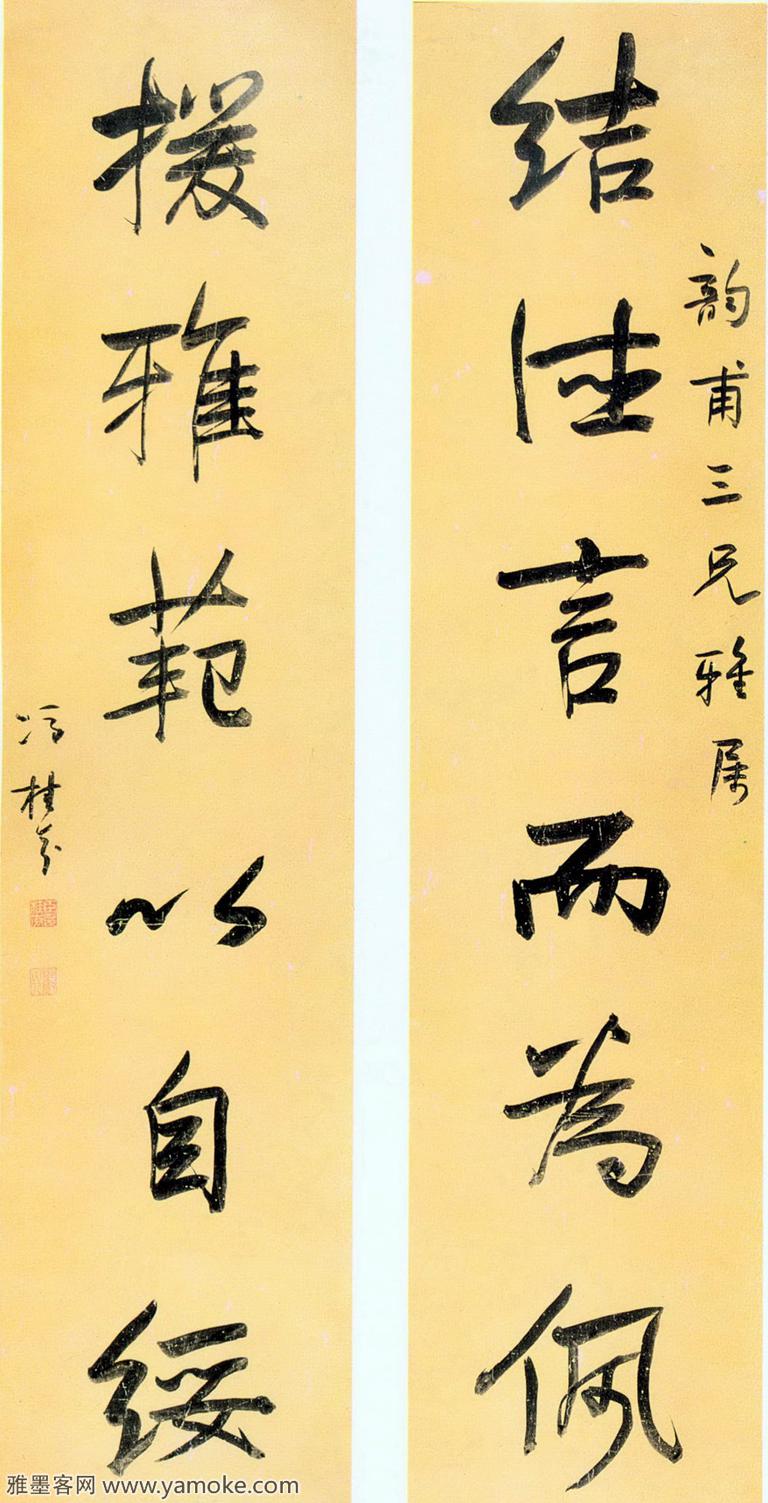 韵甫三兄雅属
結德言而為佩
援雅範以自綏
馮桂芬
雅墨客网 www.yamoke.com